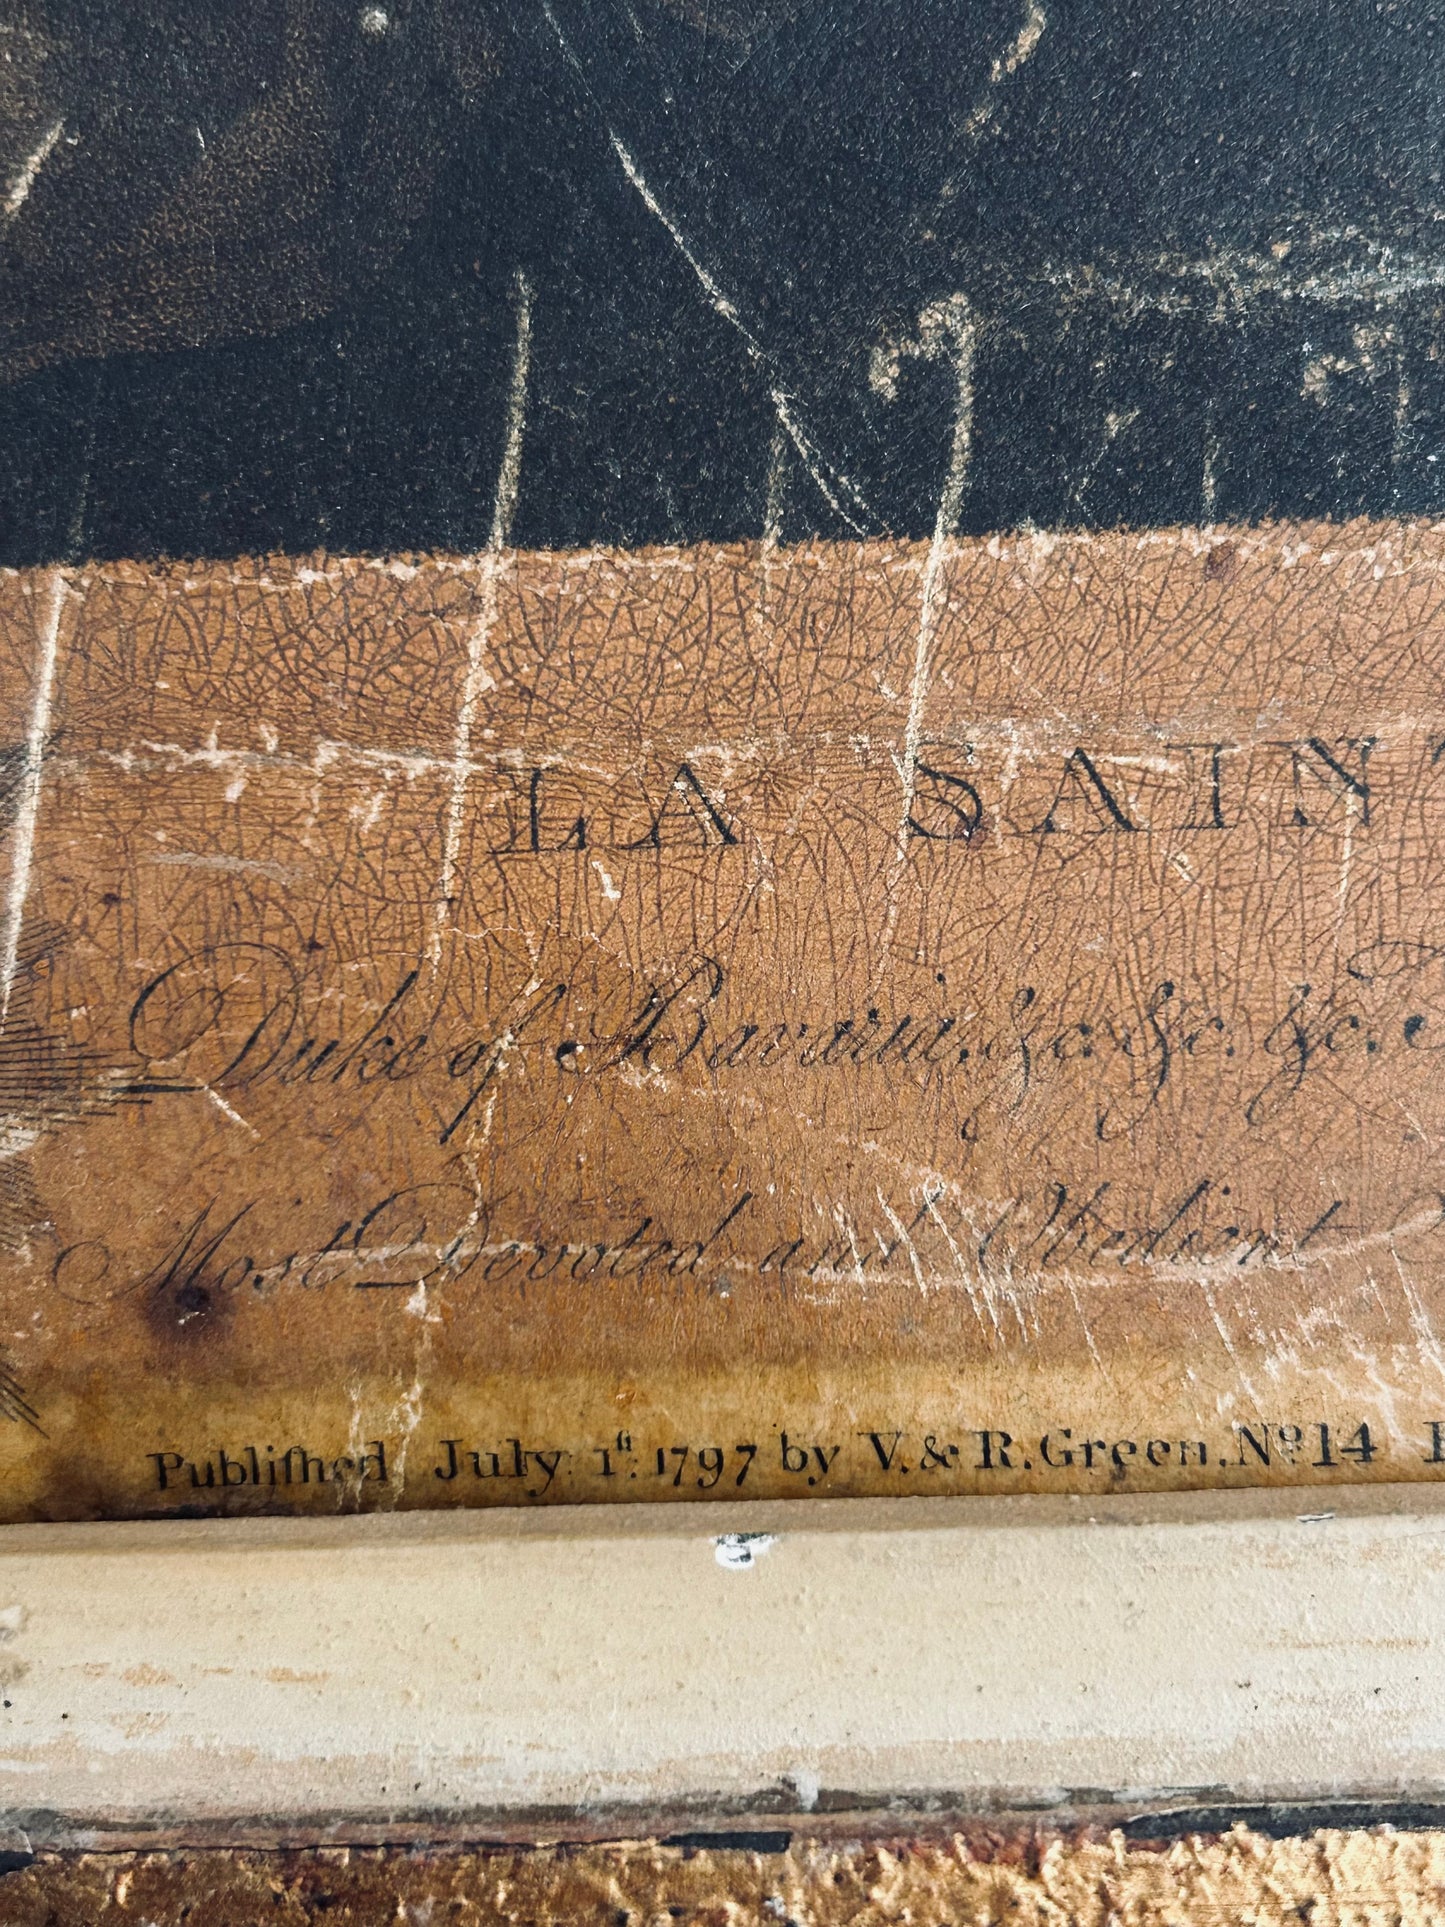 LA SAINT
Duke of Bavaria, &c. &c. &c.
Most Devoted and Obedient
Publiſhed July 1ſt. 1797 by V. & R. Green. No. 14